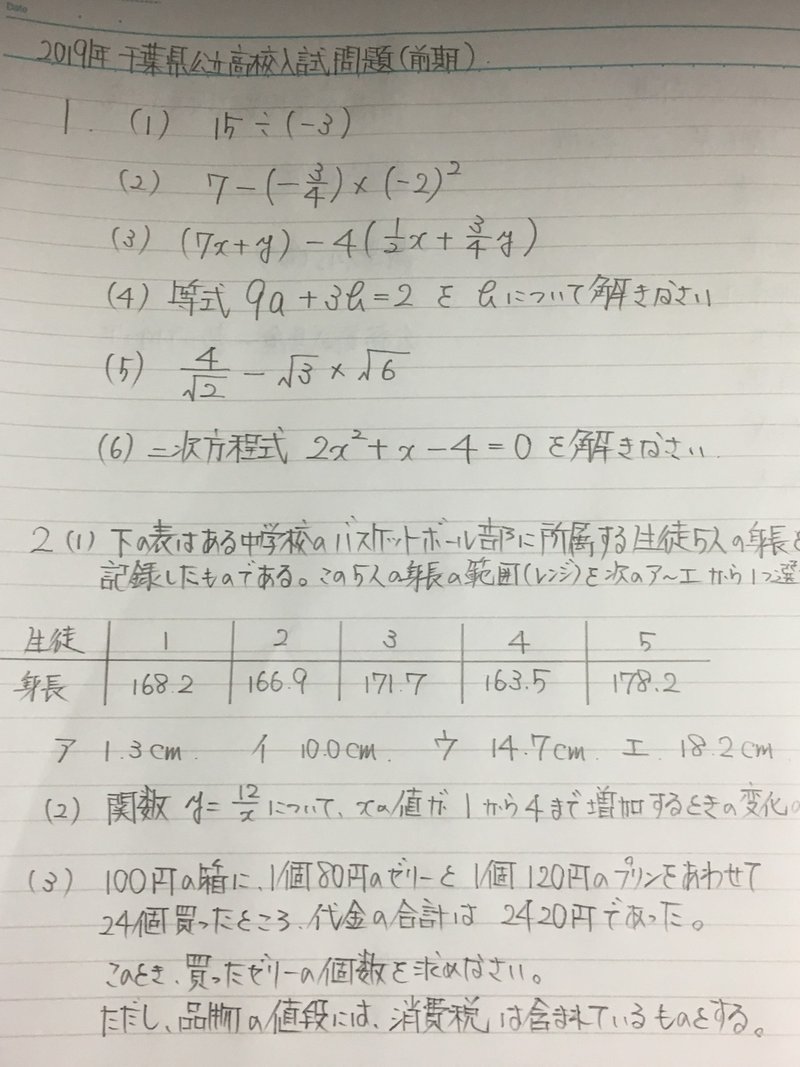 Date
2019年 千葉県公立高校入試問題(前期)
1. (1) 15÷(-3)
(2) 7-(-3/4)×(-2)²
(3) (7x+y)-4(1/2x+3/4y)
(4) 等式 9a+3b=2 を bについて解きなさい
(5) 4/√2-√3×√6
(6) 二次方程式 2x²+x-4=0 を解きなさい.
2 (1) 下の表はある中学校のバスケットボール部に所属する生徒5人の身長を
記録したものである。この5人の身長の範囲(レンジ)を次のア~エから1つ選
生徒 1 2 3 4 5
身長 168.2 166.9 171.7 163.5 178.2
ア 1.3cm. イ 10.0cm. ウ 14.7cm. エ. 18.2cm
(2) 関数 y=12/x について、xの値が1から4まで増加するときの変化の
(3) 100円の箱に、1個80円のゼリーと1個120円のプリンをあわせて
24個買ったところ、代金の合計は2420円であった。
このとき、買ったゼリーの個数を求めなさい。
ただし、品物の値段には、消費税は含まれているものとする。